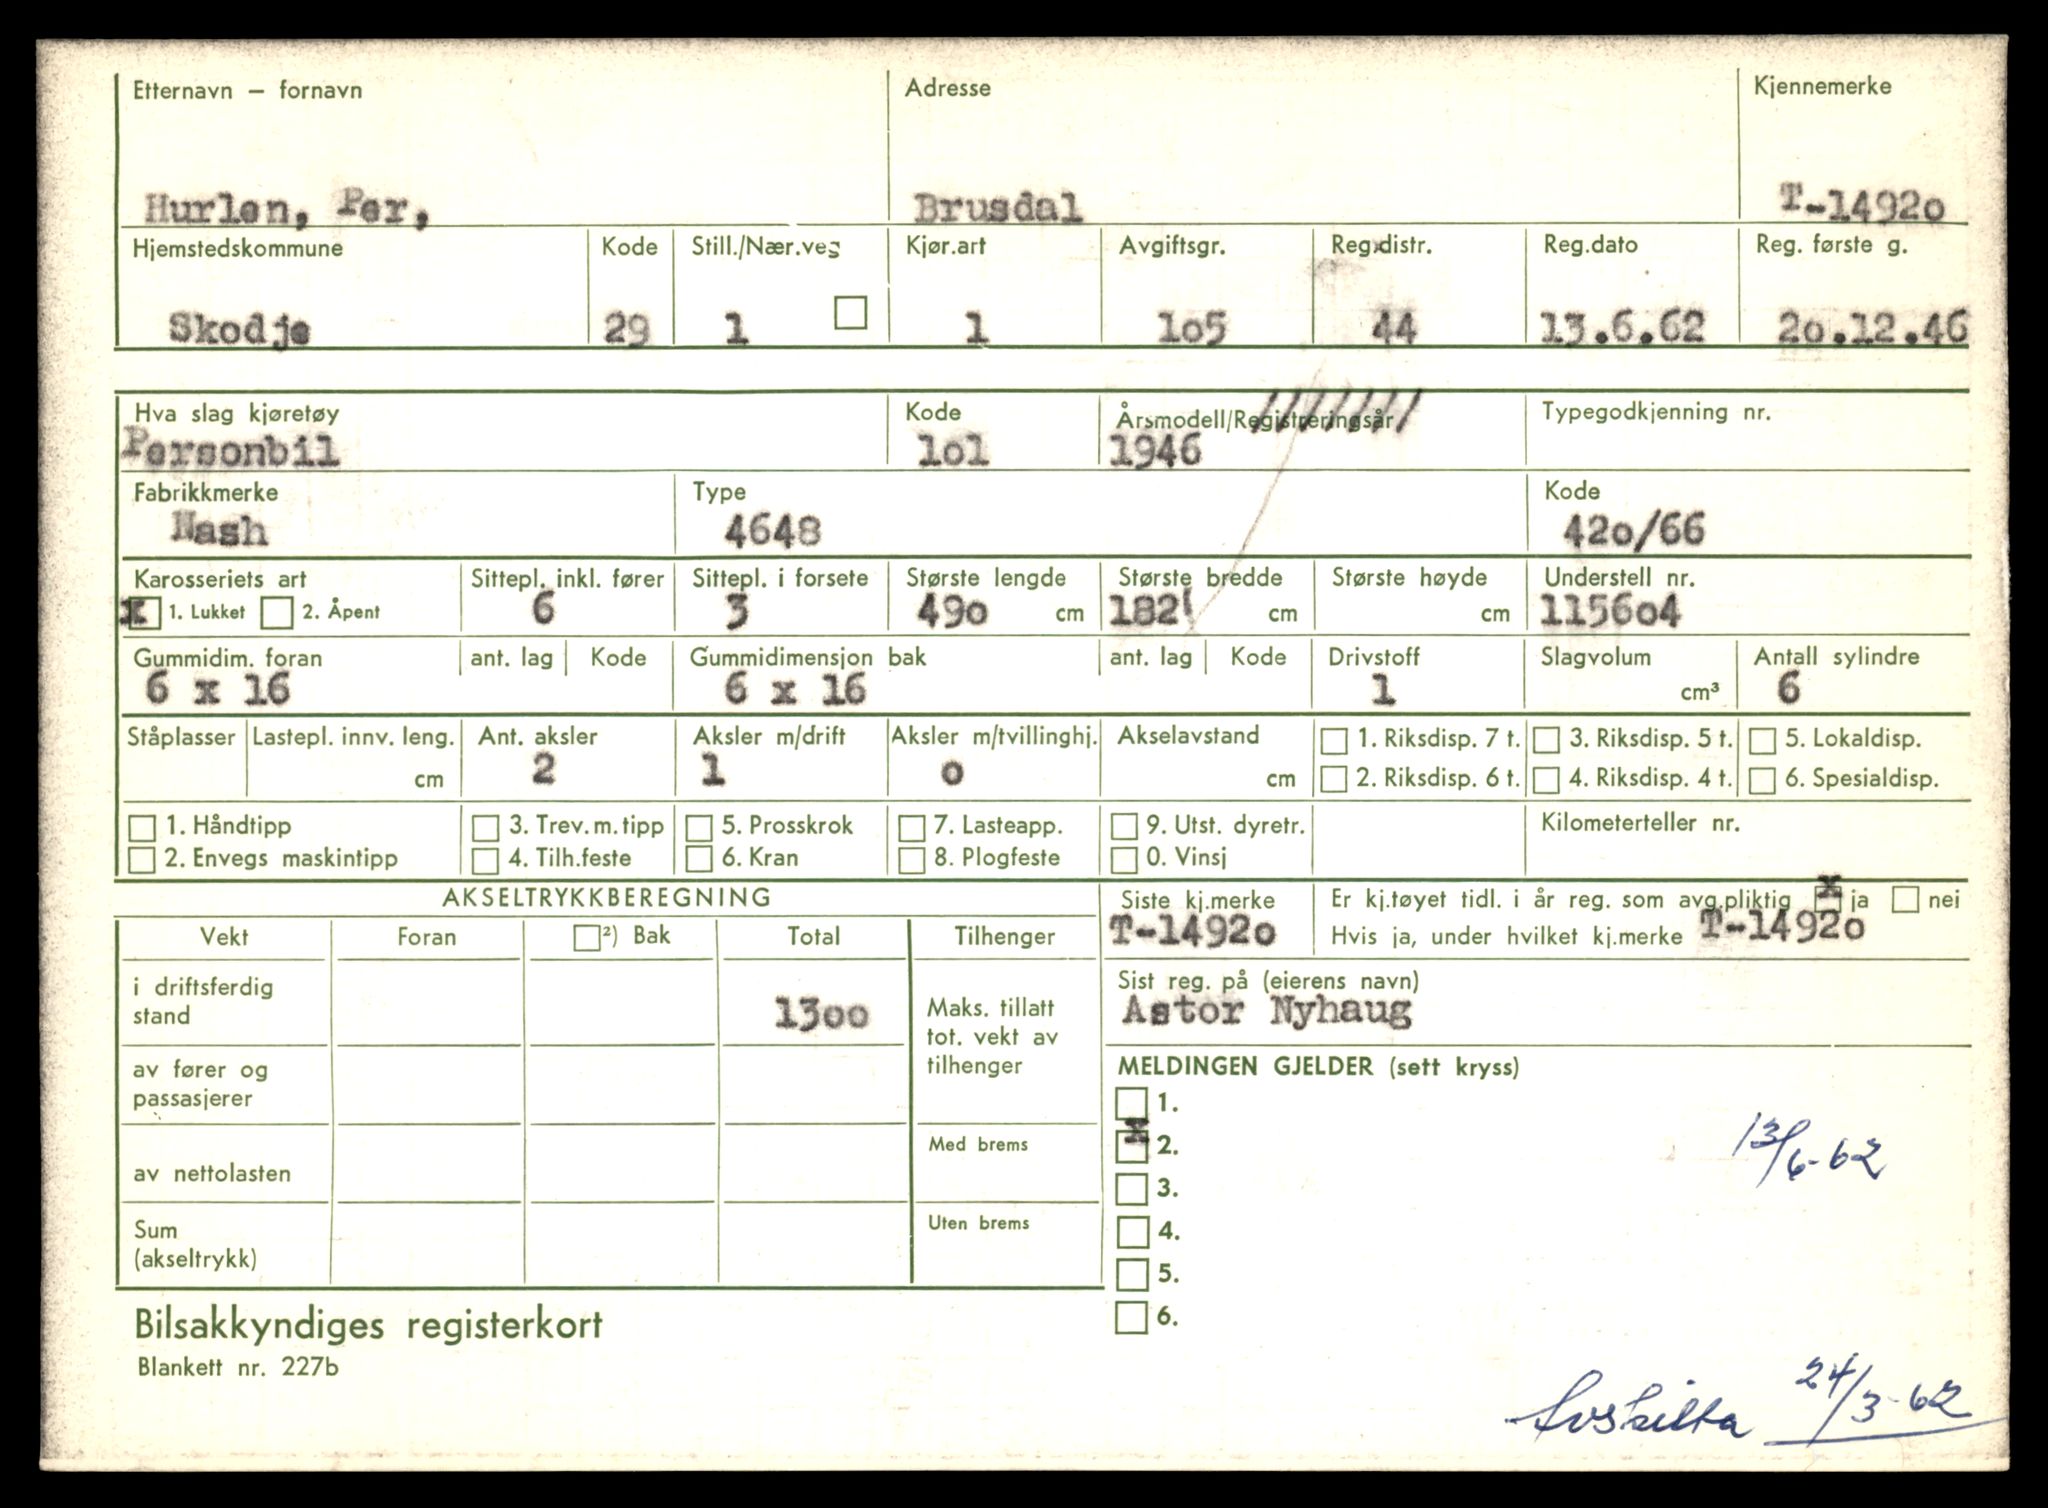 Etternavn – fornavn Adresse Kjennemerke
Hurlen, Per, Brusdal T-1492o
Hjemstedskommune Kode Still./Nær.veg Kjør.art Avgiftsgr. Reg.distr. Reg.dato Reg. første g.
Skodje 29 1 1 1o5 44 13.6.62 2o.12.46
Hva slag kjøretøy Kode Årsmodell/Registreringsår Typegodkjenning nr.
Personbil 1o1 1946
Fabrikkmerke Type Kode
Nash 4648 42o/66
Karosseriets art Sittepl. inkl. fører Sittepl. i forsete Største lengde Største bredde Største høyde Understell nr.
x 1. Lukket 2. Åpent 6 3 49o cm 182 cm cm 1156o4
Gummidim. foran ant. lag Kode Gummidimensjon bak ant. lag Kode Drivstoff Slagvolum Antall sylindre
6 x 16 6 x 16 1 cm³ 6
Ståplasser Lastepl. innv. leng. Ant. aksler Aksler m/drift Aksler m/tvillinghj. Akselavstand 1. Riksdisp. 7 t. 3. Riksdisp. 5 t. 5. Lokaldisp.
cm 2 1 o cm 2. Riksdisp. 6 t. 4. Riksdisp. 4 t. 6. Spesialdisp.
1. Håndtipp 3. Trev. m. tipp 5. Prosskrok 7. Lasteapp. 9. Utst. dyretr. Kilometerteller nr.
2. Envegs maskintipp 4. Tilh.feste 6. Kran 8. Plogfeste 0. Vinsj
AKSELTRYKKBEREGNING Siste kj.merke Er kj.tøyet tidl. i år reg. som avg.pliktig x ja nei
T-1492o Hvis ja, under hvilket kj.merke T-1492o
Vekt Foran ²) Bak Total Tilhenger
Sist reg. på (eierens navn)
Astor Nyhaug
i driftsferdig
stand 13oo
Maks. tillatt
tot. vekt av
tilhenger
av fører og
passasjerer
MELDINGEN GJELDER (sett kryss)
1.
x 2.
3.
4.
5.
6.
13/6-62
Med brems
av nettolasten
Uten brems
Sum
(akseltrykk)
Bilsakkyndiges registerkort
Blankett nr. 227b
Avskilta 24/3-62